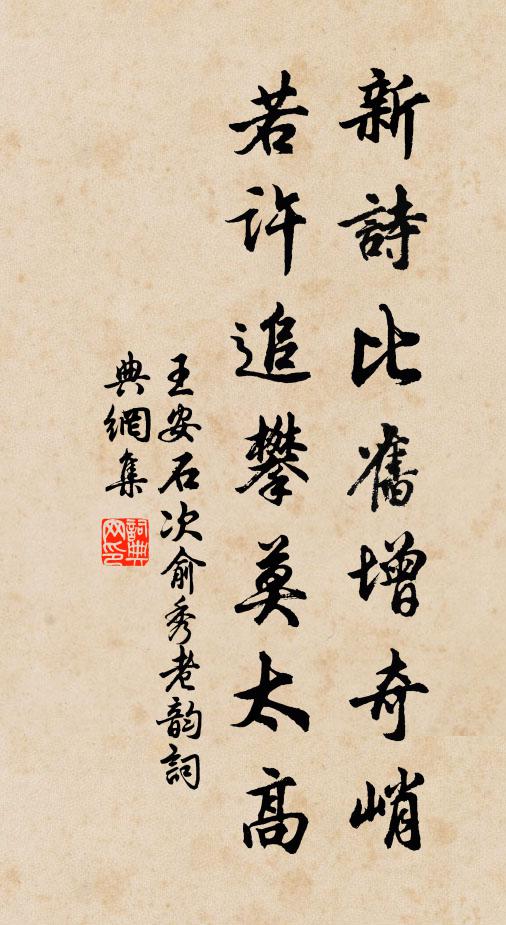 新詩比舊增奇峭
若許追攀莫太高
王安石次俞秀老韵詞
典網集
詞典
网印